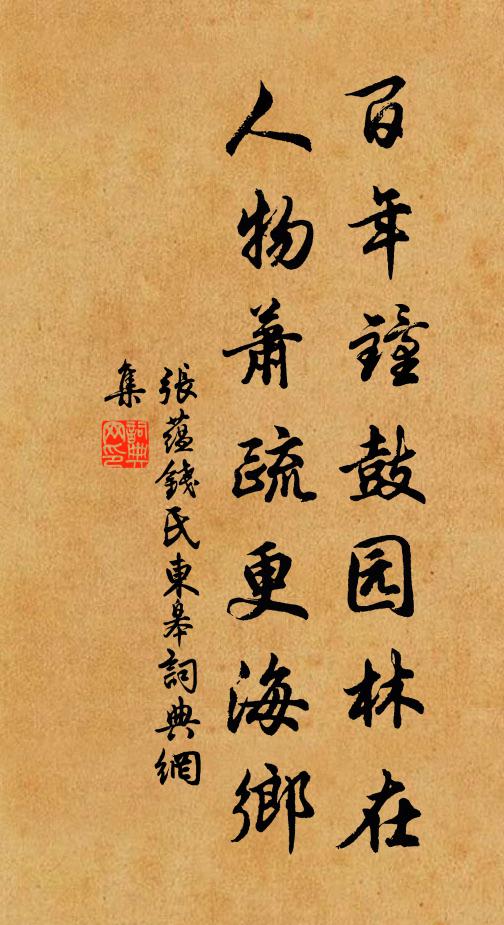 百年鐘鼓园林在
人物蕭疏更海鄉
張蘊錢氏東皋詞典網
集
詞典網印